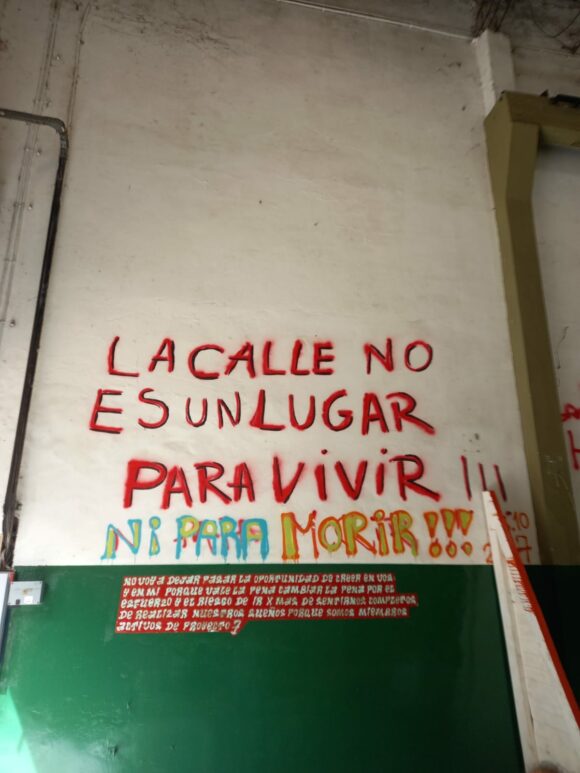 LA CALLE NO
ES UN LUGAR
PARA ViViR !!!
Ni PARA MORiR !!!
NO VOY A DEJAR PASAR LA OPORTUNIDAD DE CREER EN VOS
Y EN MI PORQUE VALE LA PENA CAMBIAR LA PENA POR EL
ESFUERZO Y EL RIESGO DE IR X MAS DE SENTIRNOS COMPLETOS,
DE REALIZAR NUESTROS SUEÑOS PORQUE SOMOS MIEMBROS
ACTIVOS DE PROYECTO 7